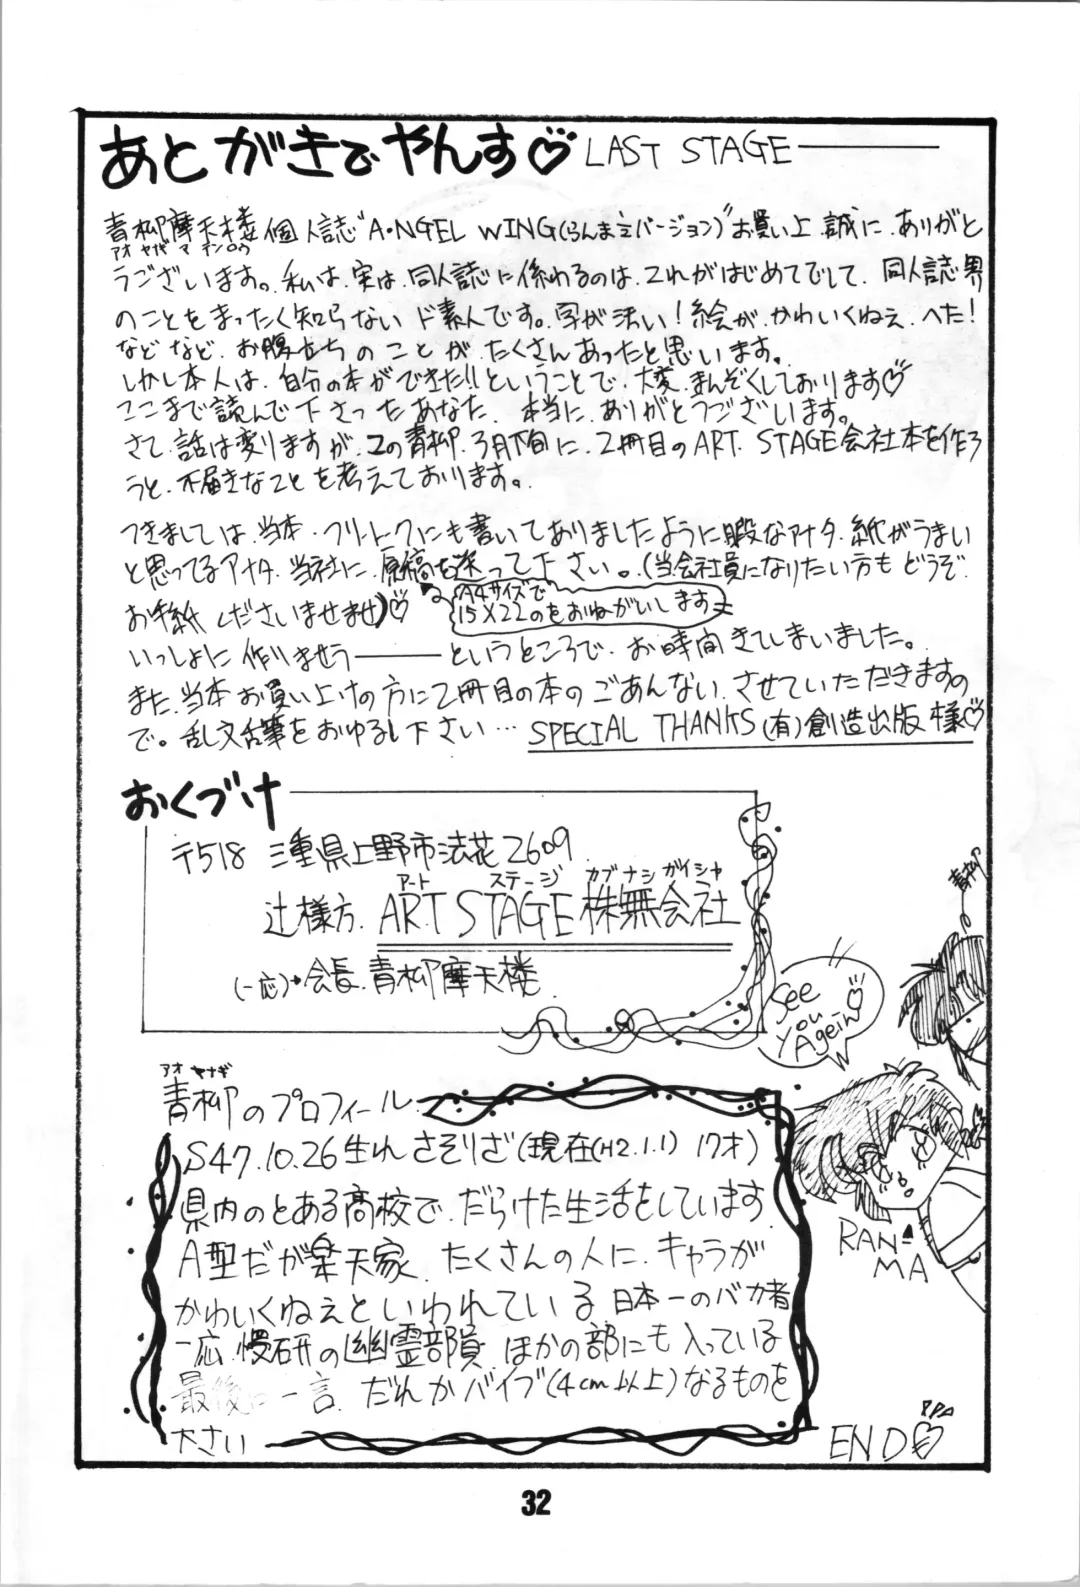 あとがきでやんす♡ LAST STAGE
青柳摩天楼個人誌“A・NGEL WING(らんま½バージョン)”お買い上、誠に、ありがと
アオ ヤナギ マ テンロウ
うございます。私は、実は、同人誌に係わるのは、これがはじめてでして、同人誌界
のことをまったく知らないド素人です。字が汚い!絵が、かわいくねえ、へた!
などなど、お腹立ちのことが、たくさんあったと思います。
しかし本人は、自分の本ができた!!ということで、大変、まんぞくしております♡
ここまで読んで下さったあなた、本当に、ありがとうございます。
さて、話は変りますが、この青柳、3月下旬に、2冊目のART. STAGE会社本を作ろ
うと、不届きなことを考えております。
つきましては、当本・フリートークにも書いてありましたように暇なアナタ、絵がうまい
と思ってるアナタ、当社に、原稿を送って下さい。(当会社員になりたい方もどうぞ
お手紙くださいませませ)♡
A4サイズで
15×22のをおねがいします
いっしょに作りませう――――というところで、お時間きてしまいました。
また、当本お買い上げの方に2冊目の本のごあんない、させていただきますの
で。乱文舌筆をおゆるし下さい… SPECIAL THANKS (有)創造出版様♡
おくづけ
〒518 三重県上野市法花2609
アート ステージ カブナシガイシャ
辻様方. ART STAGE 株無会社
(一応)→会長.青柳摩天楼
青柳
See you Agein♡
アオ ヤナギ
青柳のプロフィール
S47.10.26生れ さそりざ(現在(H2.1.1) 17才)
県内のとある高校で、だらけた生活をしています
A型だが楽天家、たくさんの人に、キャラが
かわいくねえといわれている日本一のバカ者
一応、漫研の幽霊部員、ほかの部にも入っている
最後に一言、だれかバイブ(4cm以上)なるものを
下さい
RAN-MA
END
32